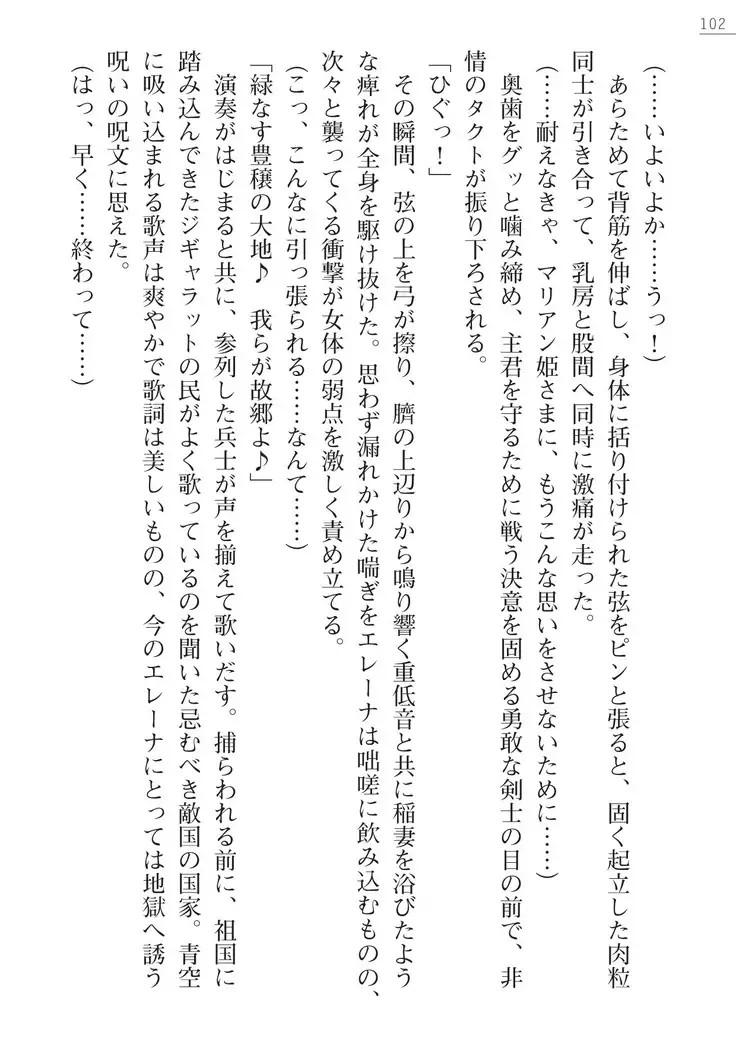 102
(……いよいよか……うっ！)
あらためて背筋を伸ばし、身体に括り付けられた弦をピンと張ると、固く起立した肉粒
同士が引き合って、乳房と股間へ同時に激痛が走った。
(……耐えなきゃ、マリアン姫さまに、もうこんな思いをさせないために……)
奥歯をグッと噛み締め、主君を守るために戦う決意を固める勇敢な剣士の目の前で、非
情のタクトが振り下ろされる。
「ひぐっ！」
その瞬間、弦の上を弓が擦り、臍の上辺りから鳴り響く重低音と共に稲妻を浴びたよう
な痺れが全身を駆け抜けた。思わず漏れかけた喘ぎをエレーナは咄嗟に飲み込むものの、
次々と襲ってくる衝撃が女体の弱点を激しく責め立てる。
(こっ、こんなに引っ張られる……なんて……)
「緑なす豊穣の大地♪　我らが故郷よ♪」
演奏がはじまると共に、参列した兵士が声を揃えて歌いだす。捕らわれる前に、祖国に
踏み込んできたジギャラットの民がよく歌っているのを聞いた忌むべき敵国の国家。青空
に吸い込まれる歌声は爽やかで歌詞は美しいものの、今のエレーナにとっては地獄へ誘う
呪いの呪文に思えた。
(はっ、早く……終わって……)